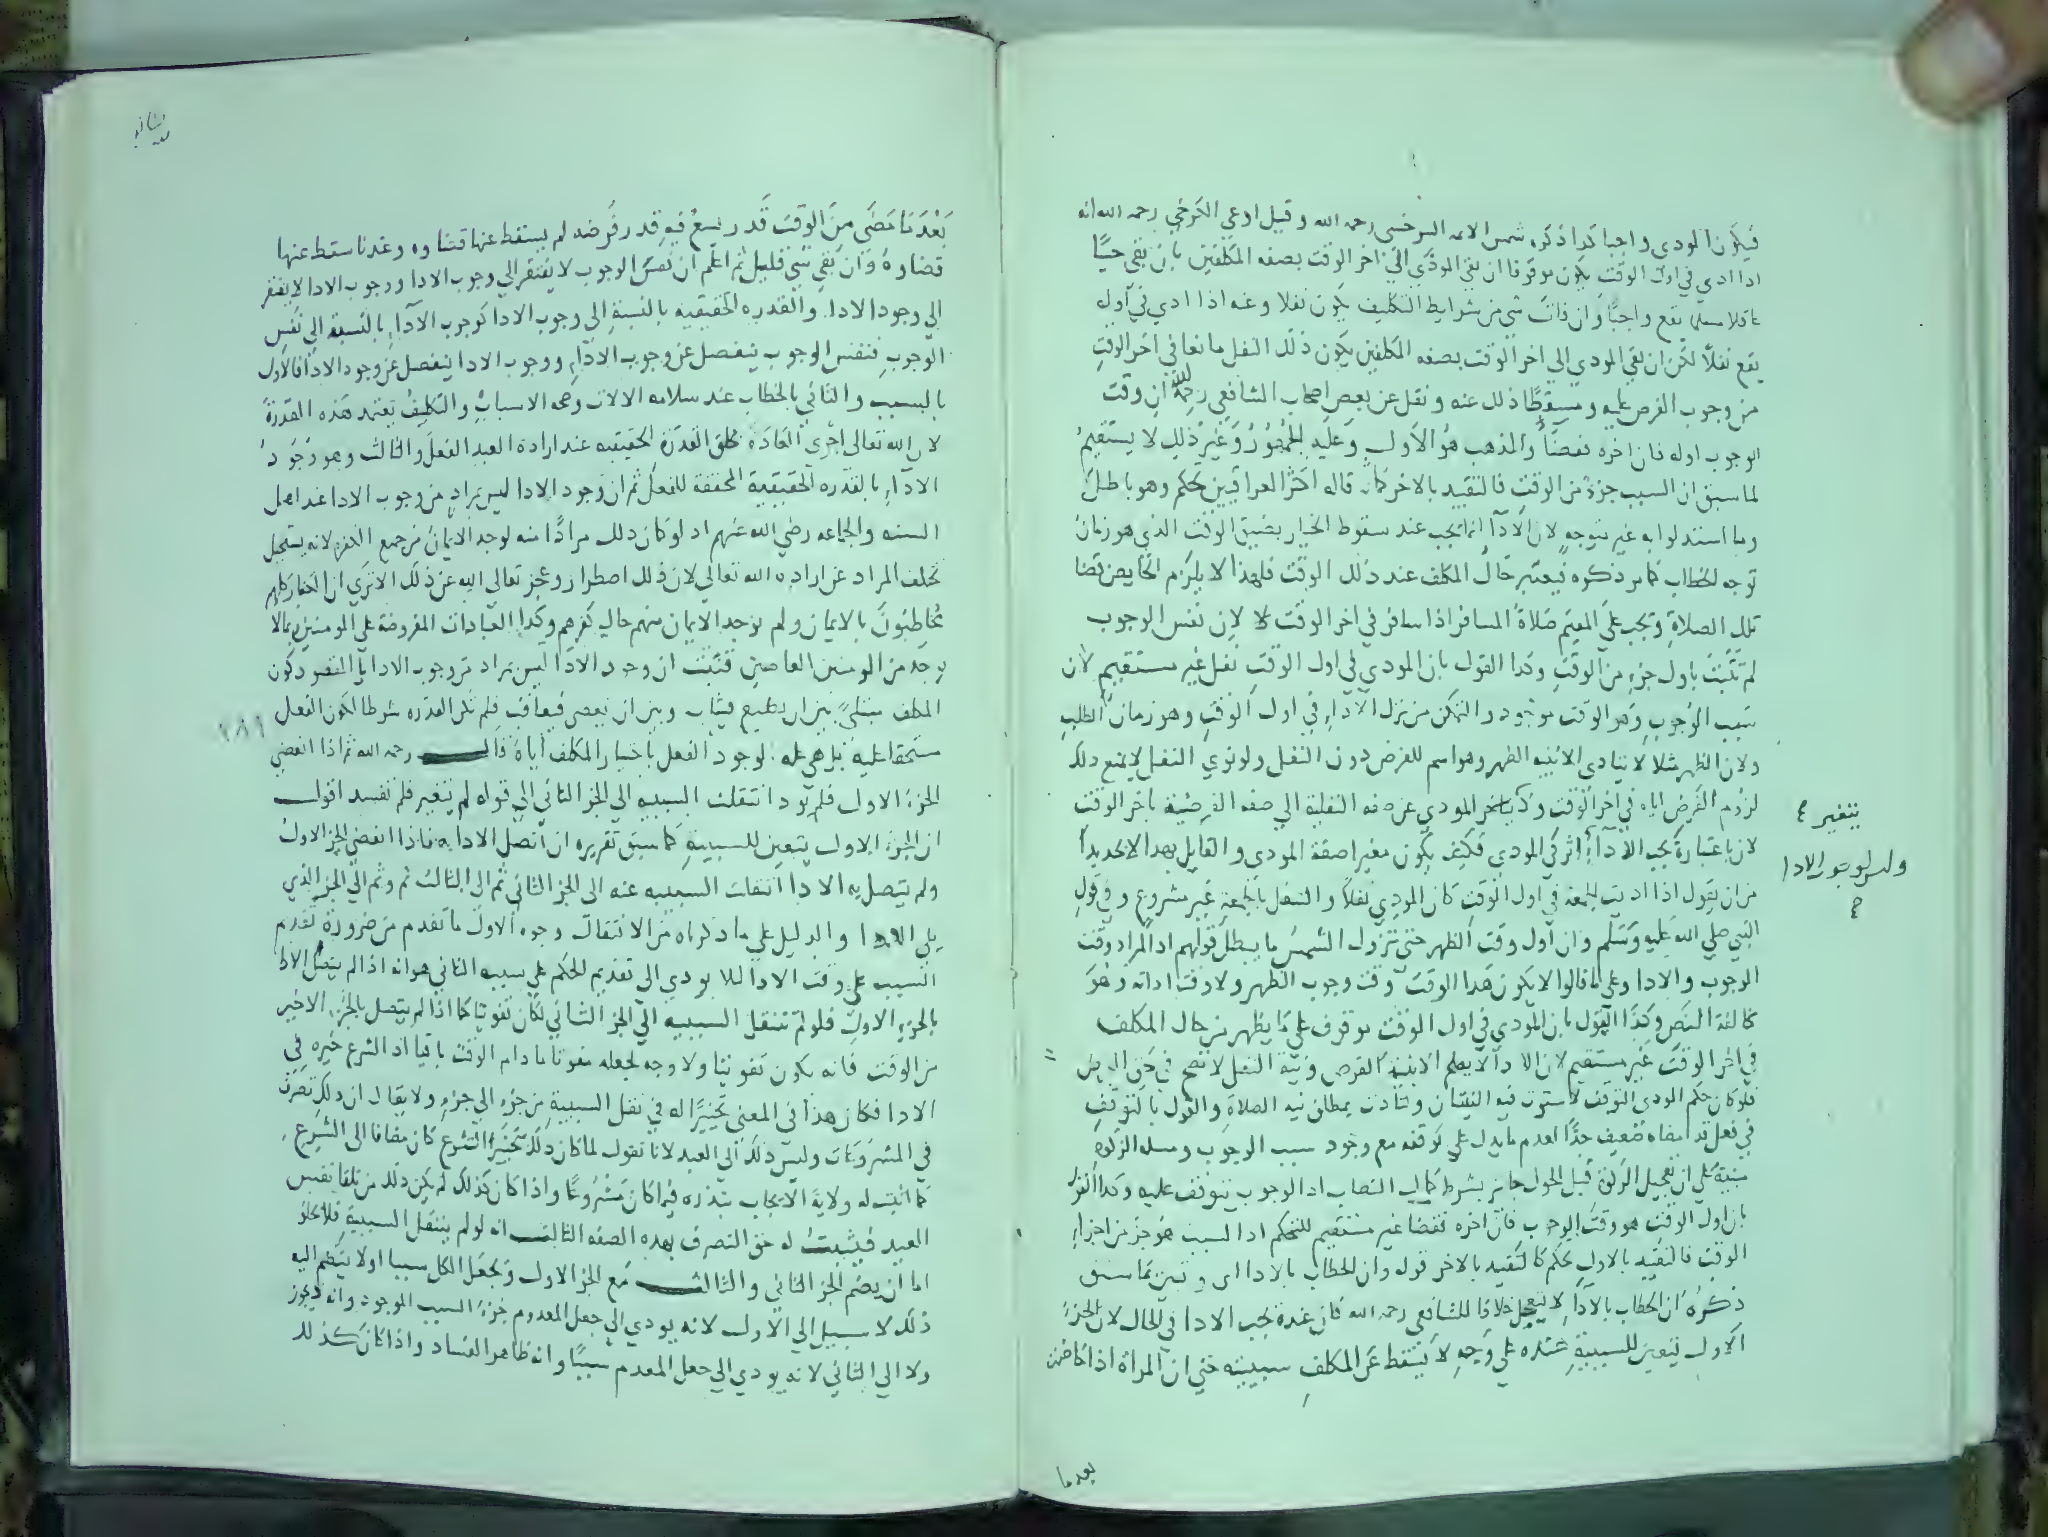 فيكون المودى واجبا كذا ذكره شمس الايمه السرخسي رحمه الله وقيل ادعي الكرخي رحمه الله انه
اذا ادي في اول الوقت يكون موقوفا ان بقي المودي الى اخر الوقت بصفه المكلفين بان بقي حيًّا
عاقلا مسلما يقع واجبًا وان فات شي من شرايط التكليف يكون نفلا وعنه اذا ادي في اوله
يقع نفلًا لكن ان بقي المودي الي اخر الوقت بصفه المكلفين يكون ذلك النفل مانعا في اخر الوقت
من وجوب الفرض عليه ومسقطًا ذلك عنه ونقل عن بعض اصحاب الشافعي رحمه الله ان وقت
الوجوب اوله فان اخره فقضاءً والمذهب هو الاول وعليه الجمهور وغير ذلك لا يستقيم
لما سبق ان السبب جزء من الوقت فالتقييد بالاخر كما قاله اكثر العراقيين تحكم وهو باطل
وما استدلوا به غير متوجه لان الادآ انما يجب عند سقوط الخيار بضيق الوقت الذي هو زمان
توجه الخطاب كما مر ذكره فيعتبر حال المكلف عند ذلك الوقت فلهذا لا يلزم الحايض قضا
تلك الصلاة ويجب على المقيم صلاة المسافر اذا سافر في اخر الوقت لا لان نفس الوجوب
لم تثبت باول جزء من الوقت وكذا القول بان المودي في اول الوقت نفل غير مستقيم لان
سبب الوجوب وهو الوقت موجود والتمكن من ترك الاداء في اول الوقت وهو زمان الطلب
ولان الظهر مثلا لا يتادي الا بنيه الظهر وهو اسم للفرض دون النفل ولو نوي النفل لا يمنع ذلك
لزوم الفرض اياه في اخر الوقت ولا المودي عن صفه النفلية الي صفه الفرضية باخر الوقت
لان باعتباره يجب الادآء اثر في المودي فكيف يكون مغيرا صفة المودي والقايل بهذا لا يجد بدا
من ان يقول اذا اديت الجمعه في اول الوقت كان المودي نفلا والتنفل بالجمعه غير مشروع وفي قول
النبي صلي الله عليه وسلم وان اول وقت الظهر حتى تزول الشمس ما يبطل قولهم اذ المراد وقت
الوجوب والادا وعلى ما قالوا لا يكون هذا الوقت وقت وجوب الظهر ولا وقت ادائه وهو
مخالفة النص وكذا القول بان المودي في اول الوقت موقوف على ما يظهر من حال المكلف
في اخر الوقت غير مستقيم لان الادآ لا يصح الا بنية الفرض ونية النفل لا تصح في حق الفرض
فلو كان حكم المودى التوقف لاستوت فيه النيتان ولتادت بمطلق نيه الصلاة والقول بالتوقف
في فعل قد امضاه ضعيف جدًّا لعدم ما يدل على توقفه مع وجود سبب الوجوب ومسله الزكوة
مبنية على ان تعجيل الزكوة قبل الحول جايز بشرط كمال النصاب اذ الوجوب يتوقف عليه وكذا القول
بان اول الوقت هو وقت الوجوب فان اخره فقضا غير مستقيم للتحكم اذ السبب هو جزء من اجزاء
الوقت فالتقييد بالاول تحكم كالتقييد بالاخر قوله وان الخطاب بالادا اى وتبين مما سبق
ذكره ان الخطاب بالادآ لا يتعجل خلافا للشافعي رحمه الله فان عنده يجب الادا في الحال لان الجزء
الاول تتعين للسببية عنده على وجه لا يسقط عن المكلف سببيته حتى ان المراة اذا حاضت
يتغير
بعد ما
بعد ما مضى من الوقت قدر يسع فيه قدر فرضه لم يسقط عنها قضاوه وعندنا سقط عنها
قضاوه وان بقي شي قليل ثم اعلم ان نفس الوجوب لا يفتقر الي وجوب الادا ووجوب الادا لا يفتقر
الي وجود الادا والقدره الحقيقيه بالنسبة الي وجوب الادا كوجوب الآداء بالنسبة الي نفس
الوجوب فنفس الوجوب ينفصل عن وجوب الاداء ووجوب الادا ينفصل عن وجود الادا فالاول
بالسبب والثاني بالخطاب عند سلامه الالات وصحه الاسباب والتكليف يعتمد هذه القدرة
لان الله تعالى اجرى العادة بخلق القدرة الحقيقيه عند ارادة العبد الفعل والثالث وهو وجود
الادآء بالقدره الحقيقية المحققة للفعل ثم ان وجود الادا ليس بمراد من وجوب الادا عند اهل
السنه والجماعه رضي الله عنهم اذ لو كان ذلك مرادًا منه لوجد الايمان من جميع الكفره لانه يستحيل
تخلف المراد عن ارادة الله تعالي لان ذلك اضطرار وعجز تعالي الله عن ذلك الا تري ان الكفار كلهم
يخاطبون بالايمان ولم يوجد الايمان منهم حال كفرهم وكذا العبادات المفروضة على المومنين ربما لا
يوجد من المومنين العاصين فثبت ان وجود الادا ليس بمراد من وجوب الادا بل المقصود كون
المكلف مبتلىً بين ان يطيع فيثاب وبين ان يعصي فيعاقب فلم تكن القدره شرطا لكون الفعل
مستحقا عليه بل هي علة لوجود الفعل باختيار المكلف اياه قال رحمه الله ثم اذا انقضي
الجزء الاول فلم يود انتقلت السببيه الي الجز الثاني الي قوله لم يتغير فلم تفسد اقول
ان الجزء الاول يتعين للسببيه كما سبق تقريره ان اتصل الادا به فاذا انقضى الجز الاول
ولم يتصل به الادا انتقلت السببيه عنه الى الجز الثاني ثم الى الثالث ثم وثم الي الجز الذي
يلي الادا والدليل على ما ذكرناه من الانتقال وجوه الاول ما تقدم من ضرورة تقدم
السبب على وقت الادا لئلا يودي الي تقديم الحكم علي سببه الثاني هو انه اذا لم يتصل الادا
بالجزء الاول فلو لم تنتقل السببيه الي الجز الثاني لكان تفويتا كما اذا لم يتصل بالجزء الاخير
من الوقت فانه يكون تفويتا ولا وجه لجعله مفوتا ما دام الوقت باقيا اذ الشرع خيره في
الادا فكان هذا في المعنى تخييرًا له في نقل السببية من جزء الي جزء ولا يقال ان ذلك تصرف
في المشروعات وليس ذلك الي العبد لانا نقول لما كان ذلك بتخيير الشرع كان مضافا الى الشرع
كما اثبت له ولاية الايجاب بنذره فيما كان مشروعا واذا كان كذلك لم يكن ذلك من تلقا نفس
العبد فيثبت له حق التصرف بهذه الصفه الثالث انه لو لم ينتقل السببية فلا يخلو
اما ان يضم الجز الثاني والثالث مع الجز الاول ويجعل الكل سببا اولا ينضم اليه
ذلك لا سبيل الي الاول لانه يودي الي جعل المعدوم جزء السبب الموجود وانه لا يجوز
ولا الي الثاني لانه يودي الي جعل المعدم سببًا وانه ظاهر الفساد واذا كان كذلك